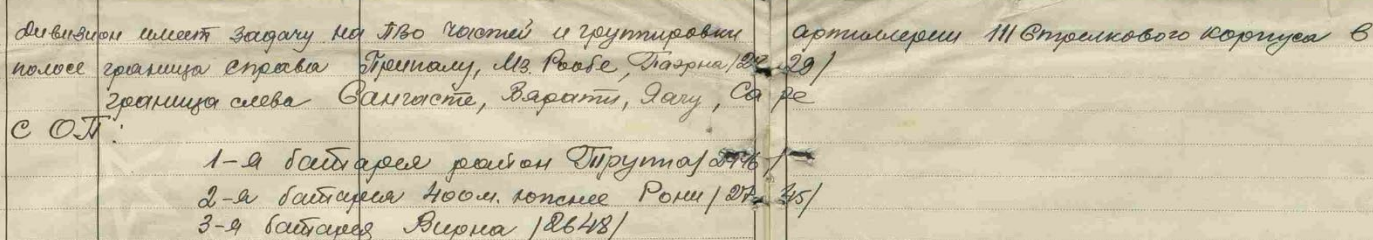 дивизион имеет задачу на ПВО частей и группировки артиллерии 111 Стрелкового корпуса в
полосе граница справа Припалу, Мз. Рообе, Таэрна /27 29/
граница слева Сангасте, Вярати, Яагу, Саре
с ОП:
1-я батарея район Трупта /2746/
2-я батарея 400м. южнее Рони /27 45/
3-я батарея Вирна /2648/